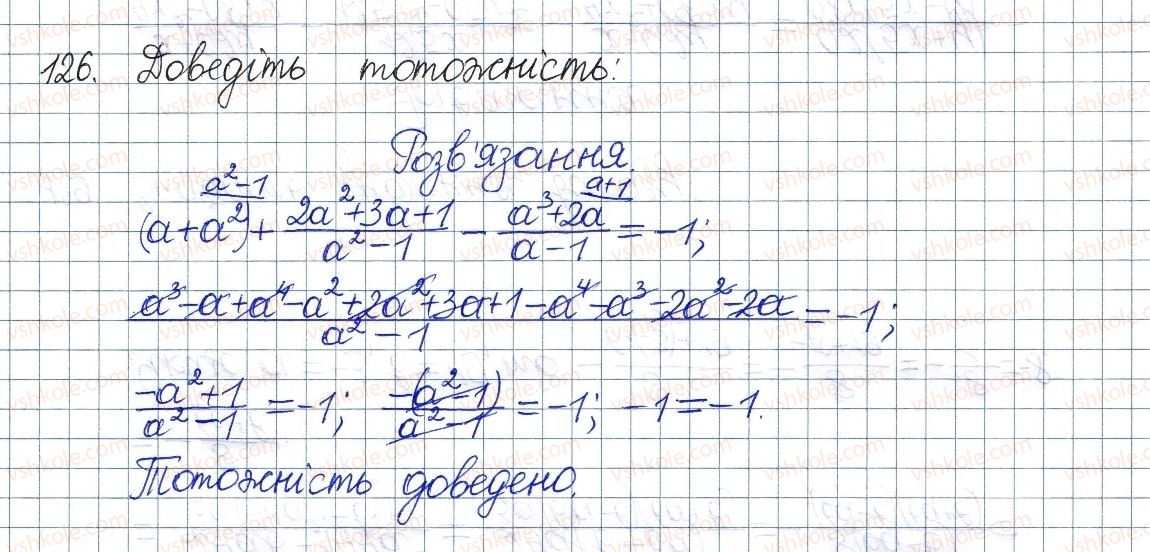 126. Доведіть тотожність:
Розв'язання.
(a+a²)^(a²-1) + (2a²+3a+1)/(a²-1) - (a³+2a)^(a+1)/(a-1) = -1;
(a³-a+a⁴-a²+2a²+3a+1-a⁴-a³-2a²-2a)/(a²-1) = -1;
(-a²+1)/(a²-1) = -1; (-(a²-1))/(a²-1) = -1; -1=-1.
Тотожність доведено.